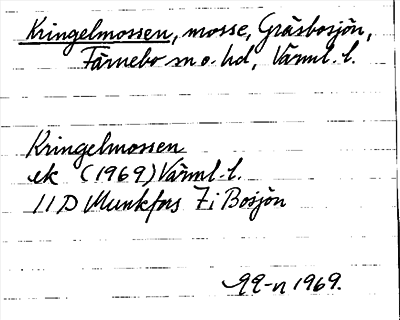 Kringelmossen, mosse, Gräsbosjön,
Färnebo sn o. hd, Värml. l.
Kringelmossen
ek (1969) Värml. l.
11D Munkfors 7i Bosjön
1969.